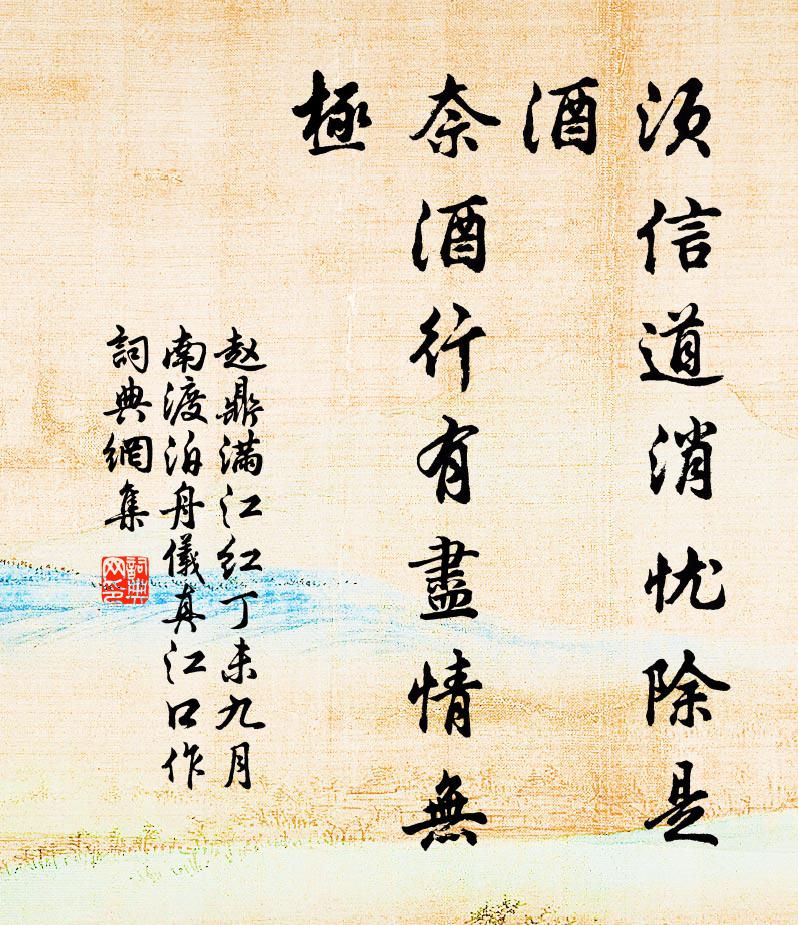 须信道消忧除是
酒
奈酒行有盡情無
極
赵鼎满江红丁未九月
南渡泊舟儀真江口作
詞典網集
詞典